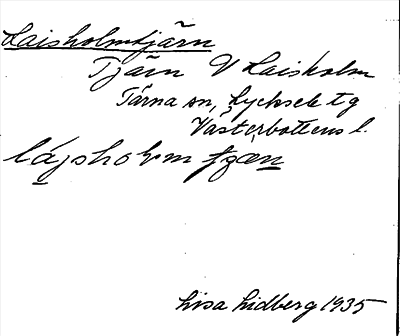 Laisholmtjärn
Tjärn V Laisholm
Tärna sn, Lycksele tg
Västerbottens l.
lájshoḷm
Lisa Lidberg 1935